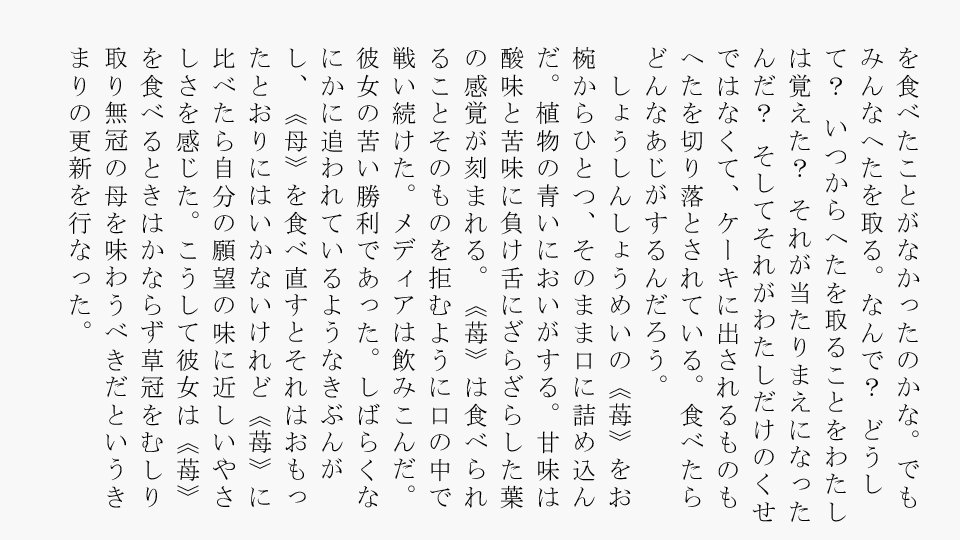 を食べたことがなかったのかな。でも
みんなへたを取る。なんで？　どうし
て？　いつからへたを取ることをわたし
は覚えた？　それが当たりまえになった
んだ？　そしてそれがわたしだけのくせ
ではなくて、ケーキに出されるものも
へたを切り落とされている。食べたら
どんなあじがするんだろう。
　しょうしんしょうめいの《苺》をお
椀からひとつ、そのまま口に詰め込ん
だ。植物の青いにおいがする。甘味は
酸味と苦味に負け舌にざらざらした葉
の感覚が刻まれる。《苺》は食べられ
ることそのものを拒むように口の中で
戦い続けた。メディアは飲みこんだ。
彼女の苦い勝利であった。しばらくな
にかに追われているようなきぶんが
し、《母》を食べ直すとそれはおもっ
たとおりにはいかないけれど《苺》に
比べたら自分の願望の味に近しいやさ
しさを感じた。こうして彼女は《苺》
を食べるときはかならず草冠をむしり
取り無冠の母を味わうべきだというき
まりの更新を行なった。